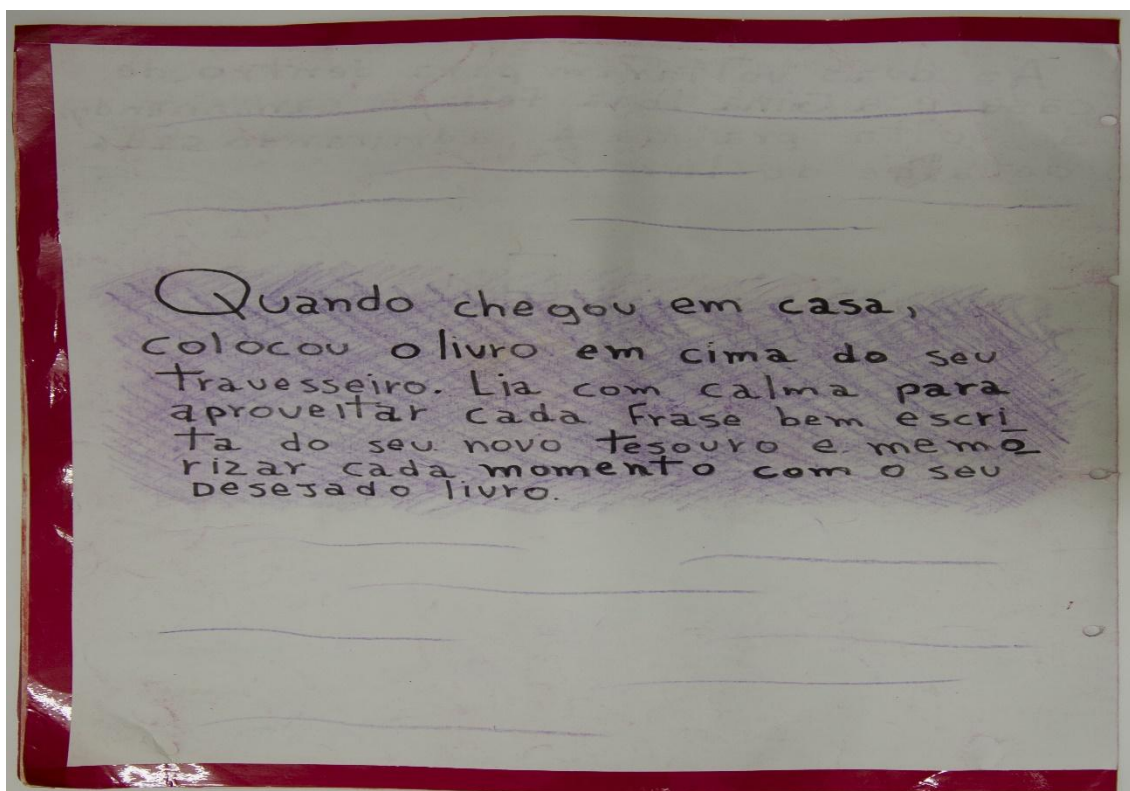 Quando chegou em casa,
colocou o livro em cima do seu
travesseiro. Lia com calma para
aproveitar cada frase bem escri
ta do seu novo tesouro e memo
rizar cada momento com o seu
Desejado livro.